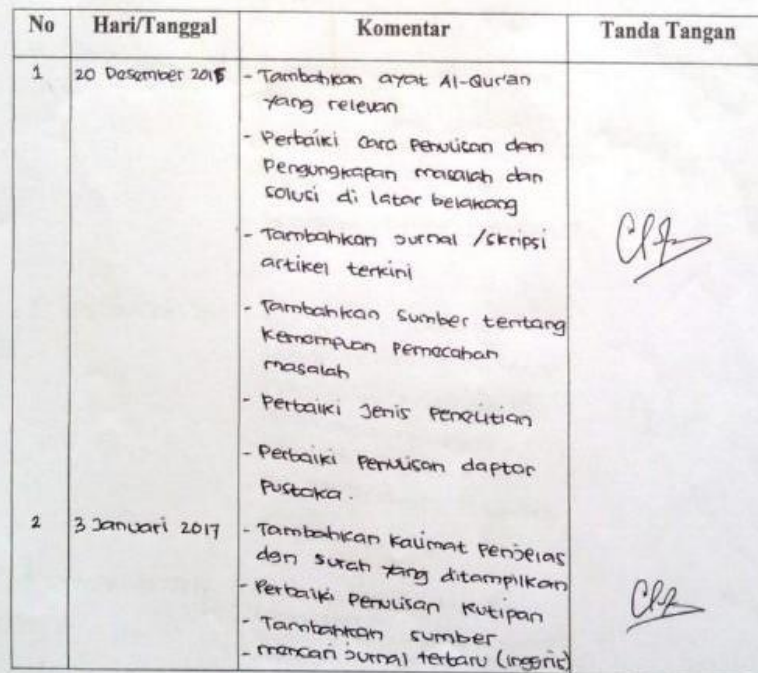 No Hari/Tanggal Komentar Tanda Tangan
1 20 Desember 2016 - Tambahkan ayat Al-Qur'an
yang relevan
- Perbaiki cara penulisan dan
Pengungkapan masalah dan
solusi di latar belakang
- Tambahkan jurnal /skripsi
artikel terkini
- Tambahkan sumber tentang
Kemampuan Pemecahan
masalah
- Perbaiki Jenis Penelitian
- Perbaiki Penulisan daptar
Pustaka.
2 3 Januari 2017 - Tambahkan Kalimat Penjelas
dan surah yang ditampilkan
- Perbaiki Penulisan Kutipan
- Tambahkan sumber
- mencari jurnal terbaru (inggris)